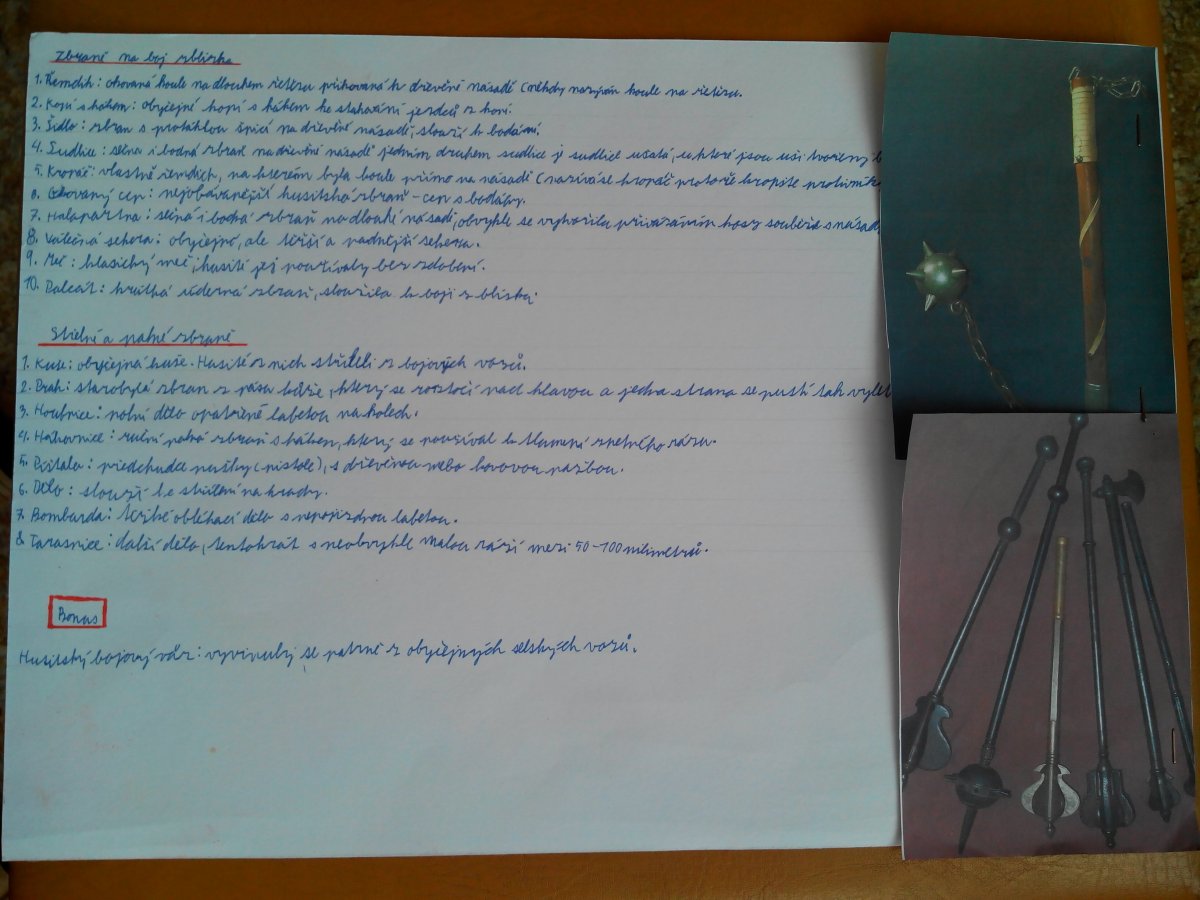 Zbraně na boj zblízka
1. Řemdih: okovaná koule na dlouhem řetězu přikovaná k dřevěné násadě (někdy nazýván koule na řetězu.
2. Kopí s hákem: obyčejné kopí s hákem ke stahování jezdců z koní.
3. Šídlo: zbran s protáhlou špicí na dřevěné násadě, slouží k bodání.
4. Sudlice: sečna i bodná zbraň na dřevěné násadě jedním druhem sudlice je sudlice ušatá, u které jsou uši tvořeny
5. Kropáč: vlastně řemdich, na kterém byla koule přímo na násadě (nazívá se kropáč protože kropíte protivník
6. Okovaný cep: nejobávanější husitská zbraň - cep s bodáky.
7. Halapartna: sečná i bodná zbraň na dlouhé násadě, obvykle se vytvořila přivázáním kosy souběžně s násad
8. Válečná sekera: obyčejná, ale těžší a padnější sekera.
9. Meč: klasický meč, husité jej používaly bez zdobení.
10. Palcát: krátká úderná zbraň, sloužila k boji z blízka;
Střelné a palné zbraně
1. Kuše: obyčejná kuše. Husité z nich stříleli z bojových vozů.
2. Prak: starobylá zbran z pásu kůže, který se roztočí nad hlavou a jedna strana se pustí tak vylet
3. Houfnice: polní dělo opatřené lafetou na kolech.
4. Hákovnice: ruční palná zbraň s hákem, který se používal k tlumení zpětného rázu.
5. Píšťala: předchudce pušky (pistole), s dřevěnou nebo kovovou pažbou.
6. Dělo: slouží ke střílení na hrady.
7. Bombarda: těžké obléhací dělo s nepojízdnou lafetou.
8. Tarasnice: další dělo, tentokrát s neobvykle malou ráží mezi 50-100 milimetrů.
Bonus
Husitský bojový vůz: vyvinuly se patrně z obyčejných selských vozů.